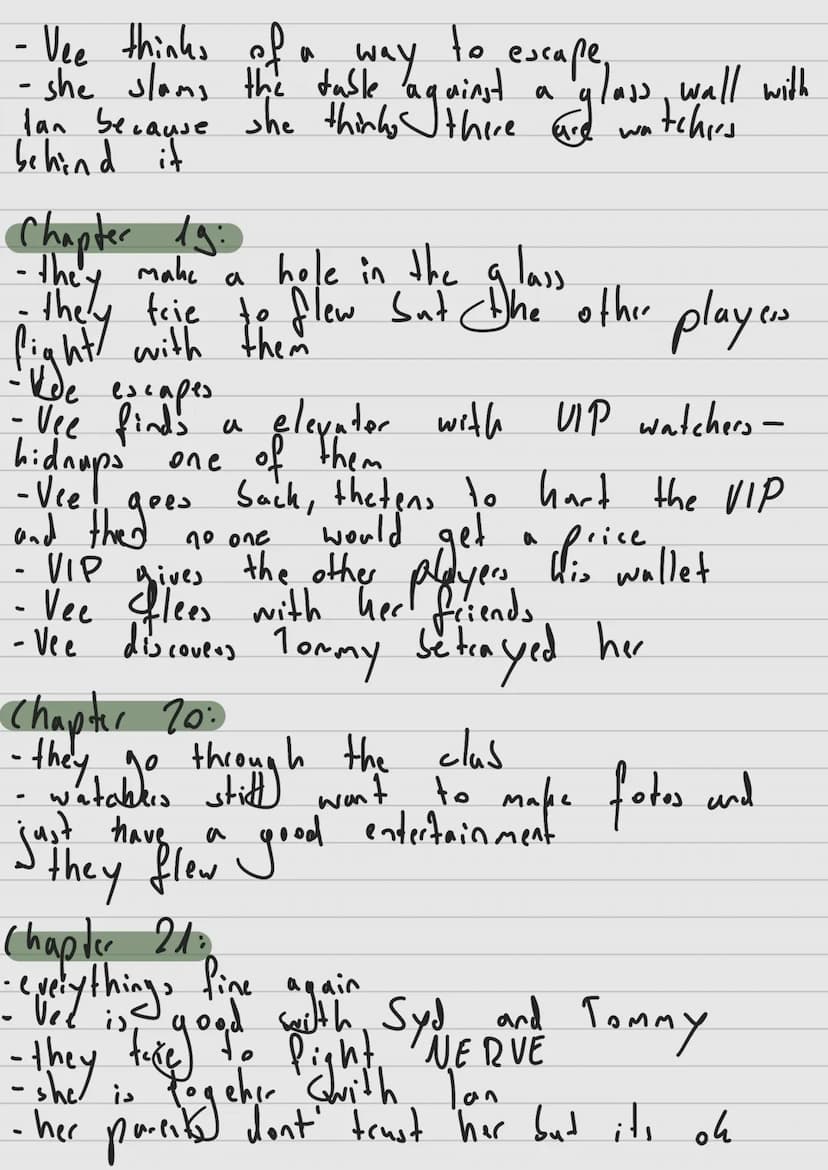 - Vee thinks of a way to escape
- she slams the table against a glass wall with
Ian because she thinks there are watchers
behind it
Chapter 19:
- they make a hole in the glass
- they trie to flew but the other players
fight with them
- Vee escapes
- Vee finds a elevator with VIP watchers -
kidnaps one of them
- Vee goes back, thetens to hart the VIP
and then no one would get a price
- VIP gives the other players his wallet
- Vee flees with her friends
- Vee discovers Tommy betrayed her
Chapter 20:
- they go through the club
- watchers still want to make fotos and
just have a good entertainment
→ they flew
Chapter 21:
- everythings fine again
- Vee is good with Syd and Tommy
- they trie to fight NERVE
- she is togehr with Ian
- her parents dont' trust her but its ok